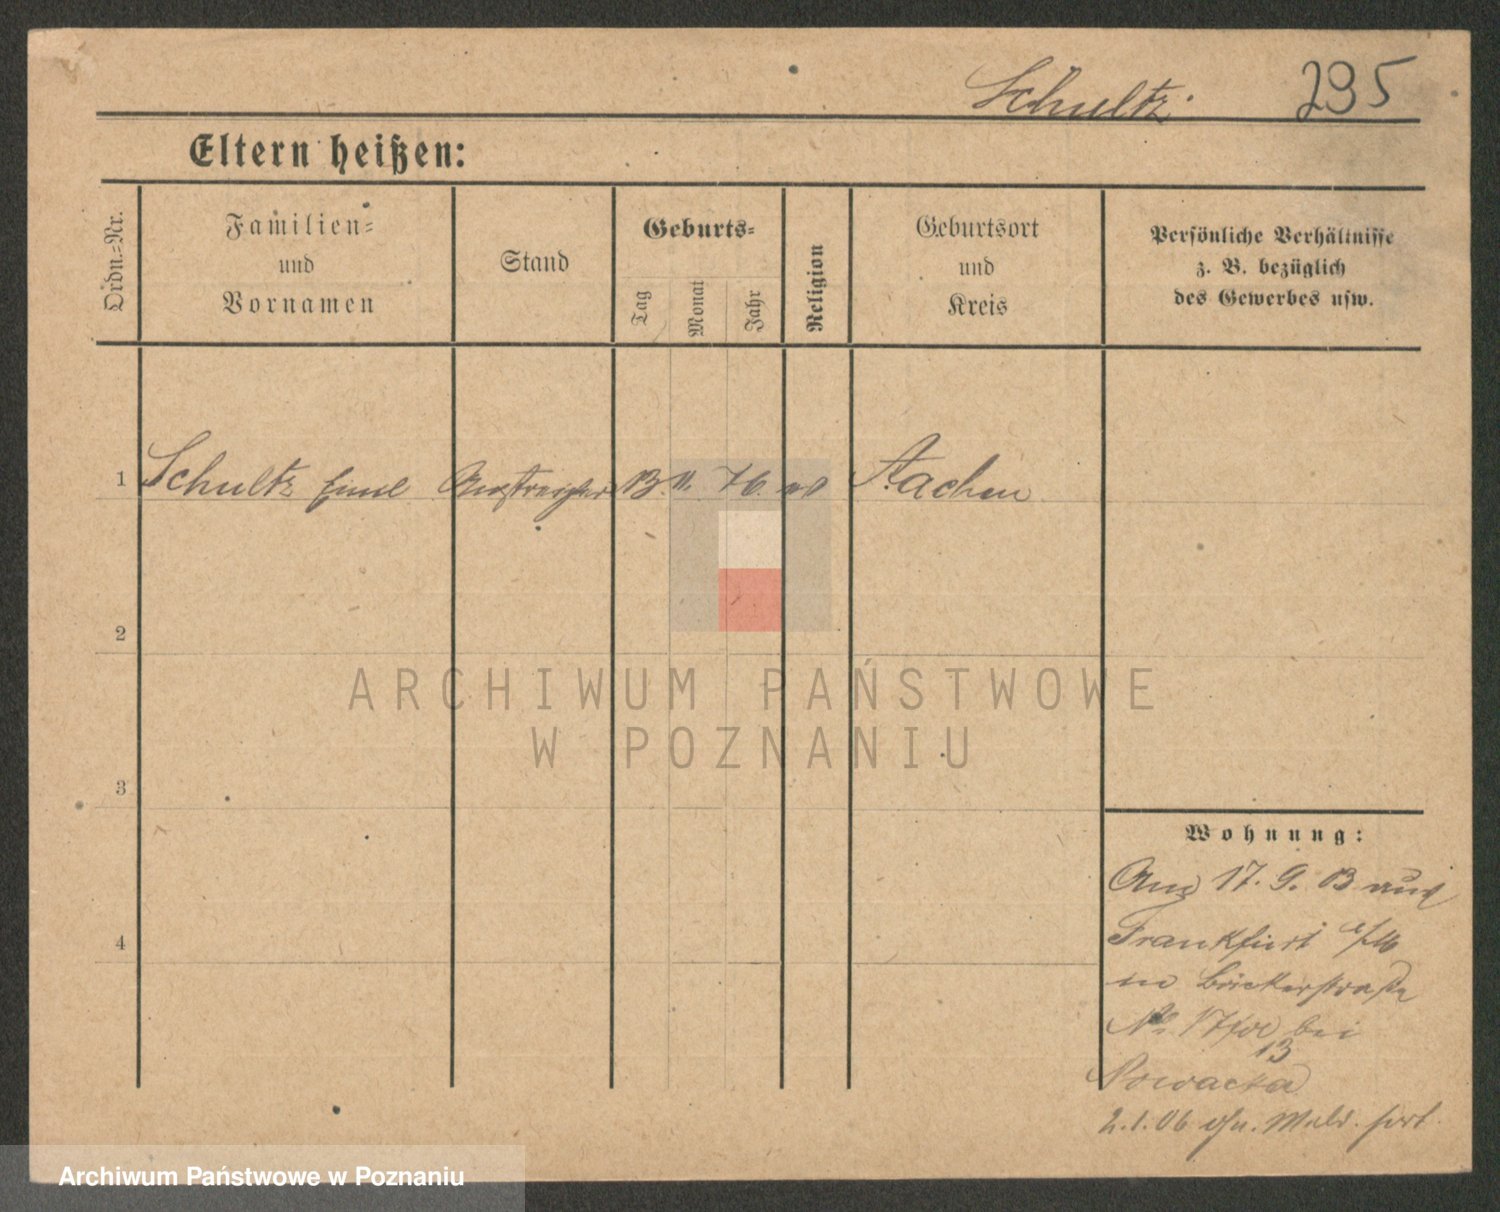 Schultz. 295
Eltern heißen:
Ordn.-Nr.
Familien-
und
Vornamen
Stand
Geburts-
Tag
Monat
Jahr
Religion
Geburtsort
und
Kreis
Persönliche Verhältnisse
z. B. bezüglich
des Gewerbes usw.
1 Schultz Emil 13. 11. 76. Aachen
2
3
4
Wohnung:
17. 9. 13 aus
Frankfurt
in Bäckerstraße
No. 17 bei
13
Nowacka
2. 1. 06 ohn. Meld. fort.
ARCHIWUM PAŃSTWOWE
W POZNANIU
Archiwum Państwowe w Poznaniu